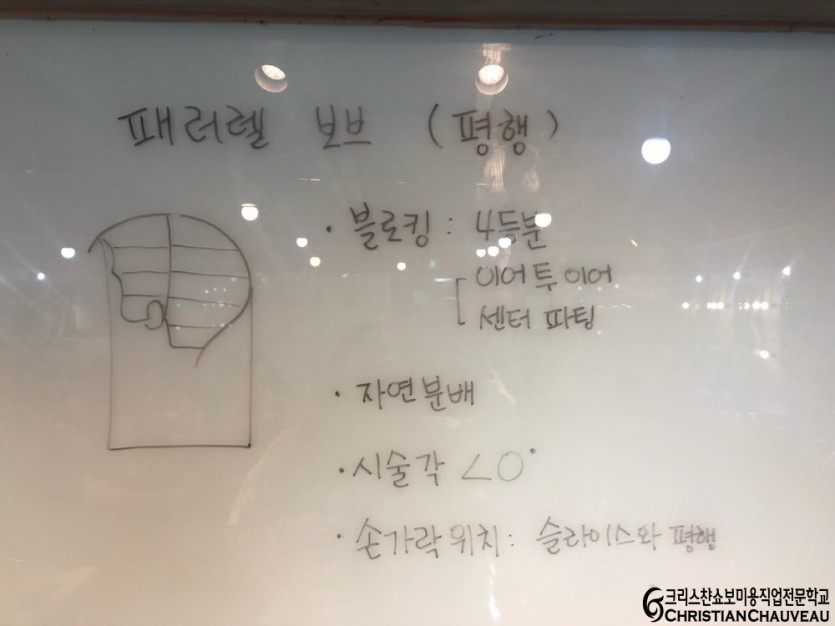 패러렐 보브 (평행)
· 블로킹 : 4등분
이어 투 이어
센터 파팅
· 자연분배
· 시술각 ∠0°
· 손가락위치 : 슬라이스와 평행
크리스챤쇼보미용직업전문학교
CHRISTIANCHAUVEAU